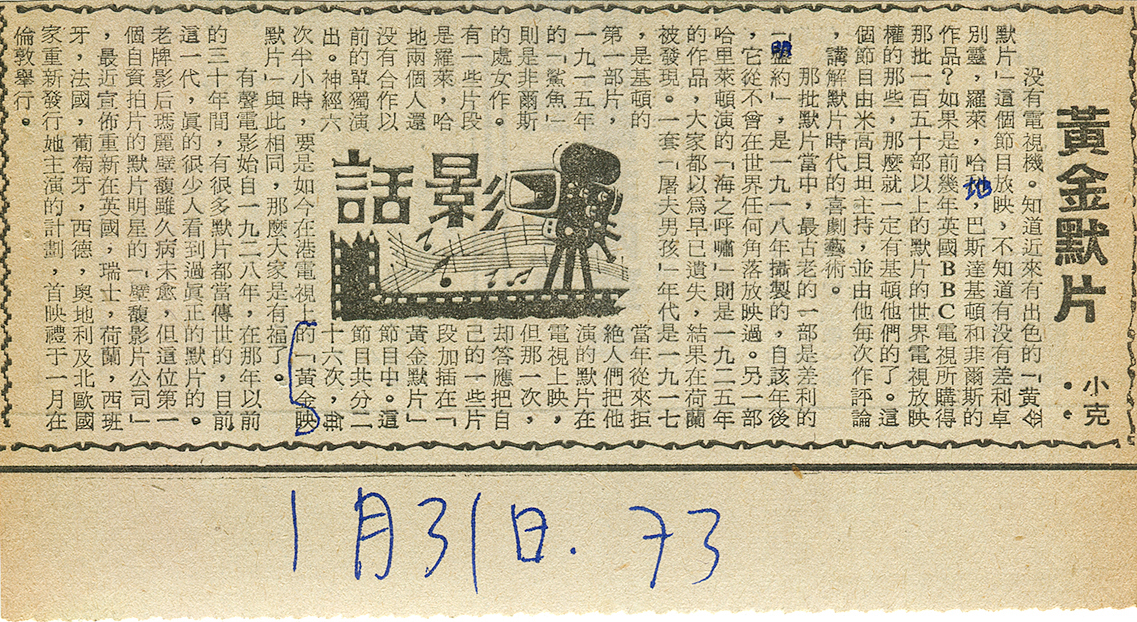 黃金默片
小克
没有電視機。知道近來有出色的「黃金
默片」這個節目放映,不知道有没有差利卓
別靈,羅萊,哈地,巴斯達基頓和菲爾斯的
作品?如果是前幾年英國BBC電視所購得
那批一百五十部以上的默片的世界電視放映
權的那些,那麼就一定有基頓他們的了。這
個節目由米高貝坦主持,並由他每次作評論
,講解默片時代的喜劇藝術。
那批默片當中,最古老的一部是差利的
「明盟約」,是一九一八年攝製的,自該年後
,它從不曾在世界任何角落放映過。另一部
哈里萊頓演的「海之呼嘯」則是一九二五年
的作品,大家都以爲早已遺失,結果在荷蘭
被發現。一套「屠夫男孩」年代是一九一七
,是基頓的
第一部片,
一九一五年
的「鯊魚」
則是非爾斯
的處女作。
有一些片段
是羅萊,哈
地兩個人還
没有合作以
前的單獨演
出。神經六
影話
當年從來拒
絶人們把他
演的默片在
電視上映,
但那一次,
却答應把自
己的一些片
段加插在「
黃金默片」
節目中。這
節目共分二
十六次,每
次半小時,要是如今在港電視上的「黃金映
默片」與此相同,那麼大家是有福了。
有聲電影始自一九二八年,在那年以前
的三十年間,有很多默片都當傳世的,目前
這一代,眞的很少人看到過眞正的默片的。
老牌影后瑪麗璧馥雖久病未愈,但這位第一
個自資拍片的默片明星的「璧馥影片公司」
,最近宣佈重新在英國,瑞士,荷蘭,西班
牙,法國,葡萄牙,西德,奧地利及北歐國
家重新發行她主演的計劃,首映禮于一月在
倫敦舉行。
1月31日. 73